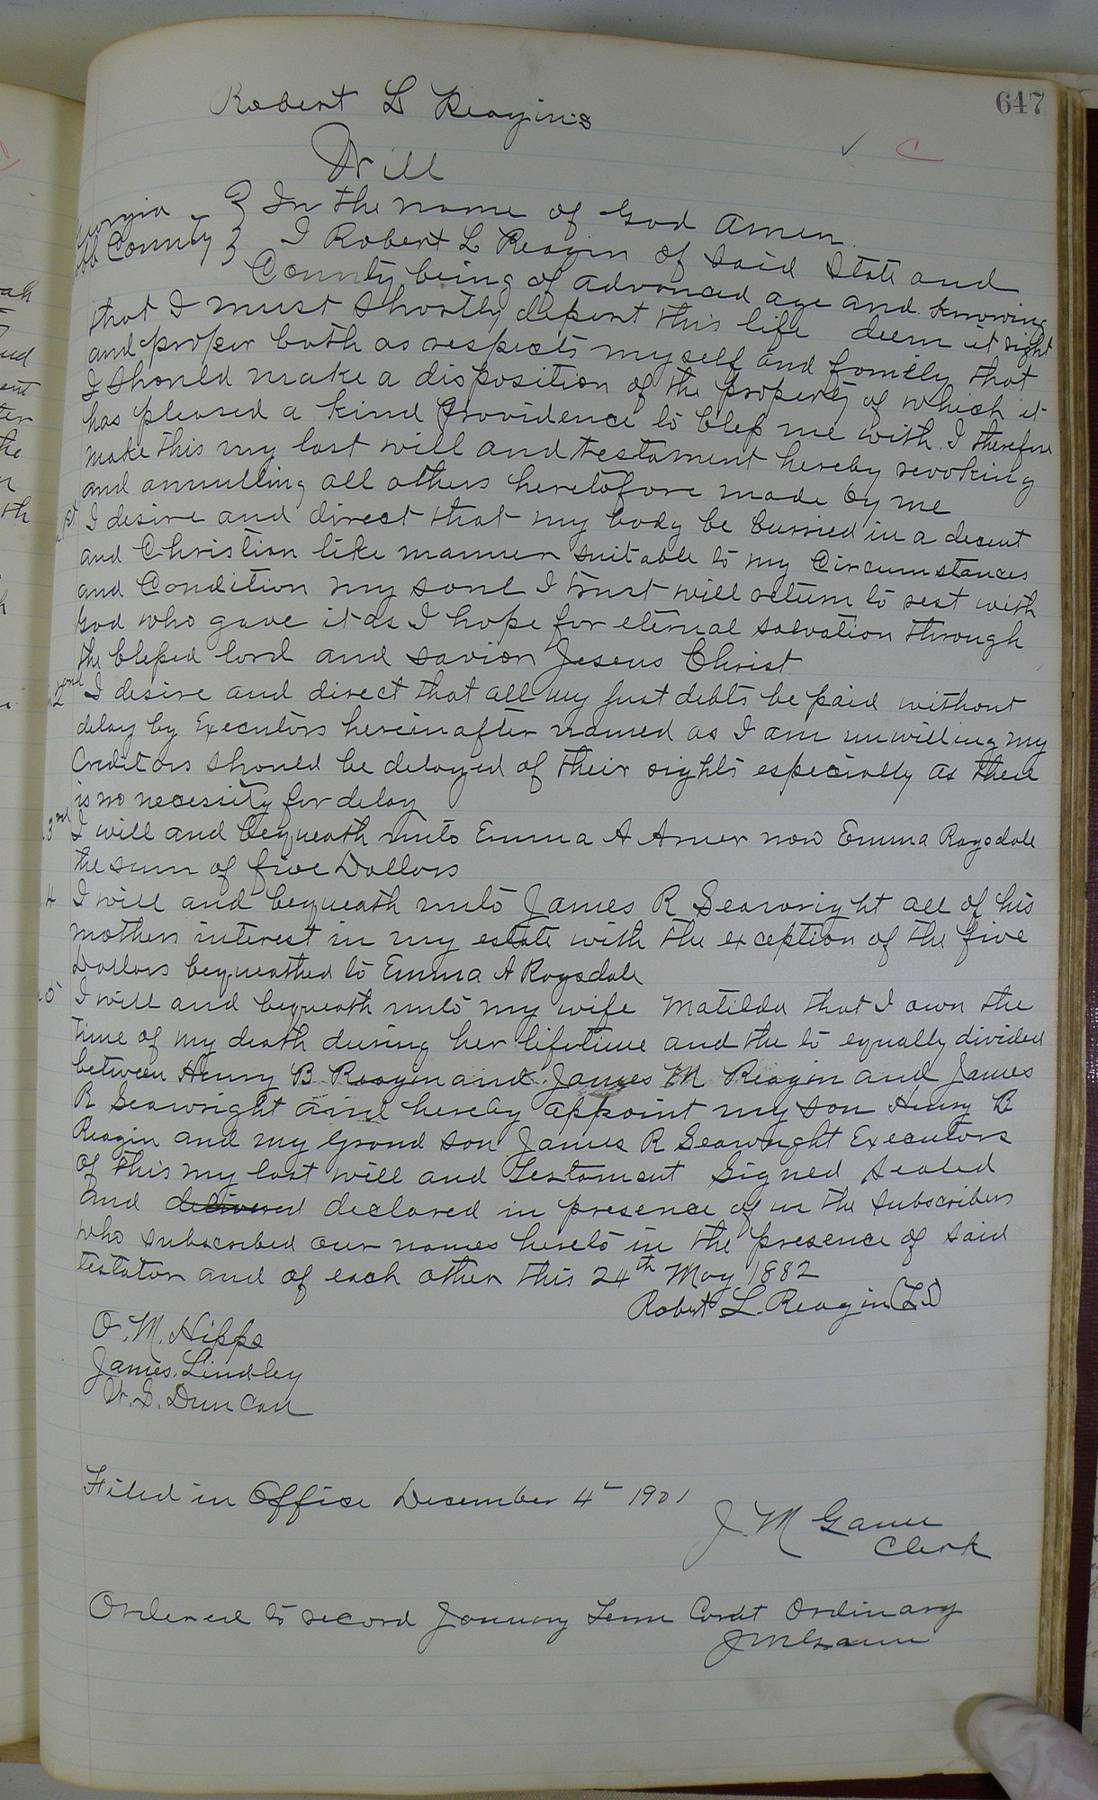 647
Robert L Reagin's
Will
Georgia } In the name of God Amen
Cobb County } I Robert L Reagin of Said State and
County being of advanced age and knowing
that I must Shortly depart this life deem it right
and proper both as respects myself and family that
I should make a disposition of the property of which it
has pleased a kind Providence to bless me with. I therefore
make this my last will and testament hereby revoking
and annulling all others heretofore made by me
1st I desire and direct that my body be burried in a decent
and Christian like manner suitable to my Circumstances
and Condition my soul I trust will return to rest with
God who gave it as I hope for eternal salvation through
the blessed lord and savior Jeseus Christ
2ond I desire and direct that all my just debts be paid without
delay by Executors hereinafter named as I am unwilling my
Creditors should be delayed of their rights especially as there
is no necessity for delay
3rd I will and bequeath unto Emma A Amer now Emma Ragsdale
the sum of five Dollars
4 I will and bequeath unto James R Seawright all of his
mothers interest in my estate with the exception of the five
Dollars bequeathed to Emma A Ragsdale
5 I will and bequeath unto my wife Matilda that I own the
time of my death during her lifetime and the to equally divided
between Henry B Reagin and James M Reagin and James
R Seawright and hereby appoint my son Henry B
Reagin and my Grand son James R Seawright Executors
of this my last will and Testament Signed Sealed
and delivered declared in presence of us the subscribers
who subscribed our names hereto in the presence of said
testator and of each other this 24th May 1882
Robert L. Reagin (LS)
O. M. Hipps
James. Lindley
W. S. Duncan
Filed in Office December 4th 1901
J. M Gann
Clerk
Ordered to record January Term Court Ordinary
J M Gann